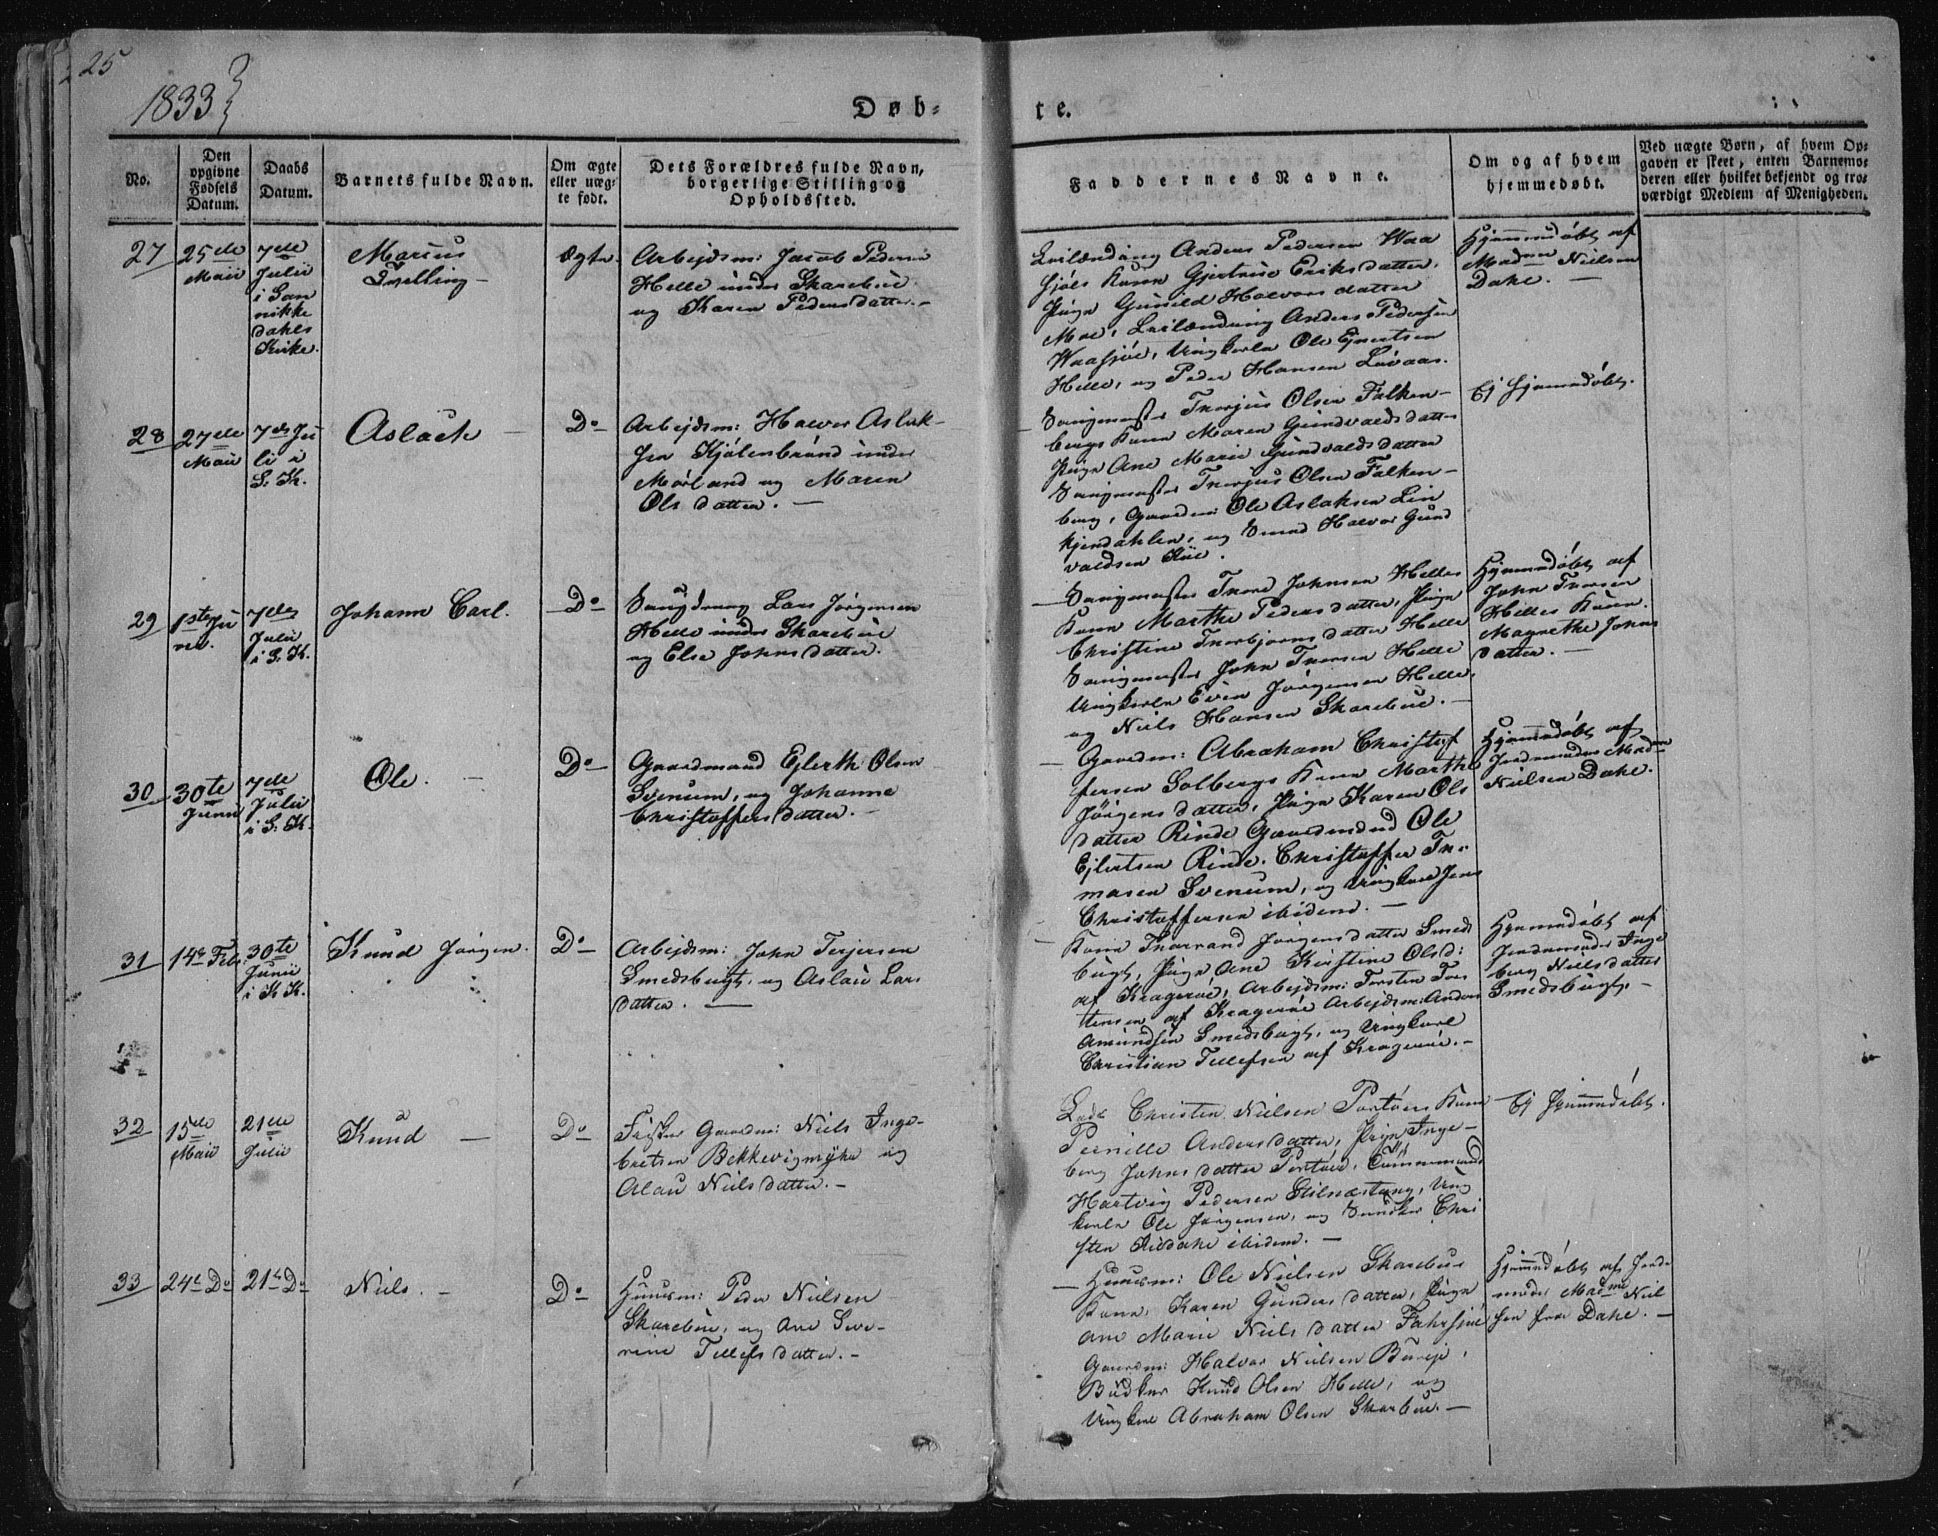 25
1833
Døb-
te.
No.
Den
opgivne
Fødsels
Datum.
Daabs
Datum.
Barnets fulde Navn.
Om ægte
eller uæg-
te født.
Dets Forældres fulde Navn,
borgerlige Stilling og
Opholdssted.
Faddernes Navne.
Om og af hvem
hjemmedøbt.
Ved uægte Børn, af hvem Op-
gaven er skeet, enten Barnemo-
deren eller hvilket bekjendt og tro-
værdigt Medlem af Menigheden.
27
25de
Maii
7de
Julii
i San
nikke
dahls
Kirke.
Marius
Tvelling
Ægte.
Arbejdsm: Jacob Pedersen
Helle under Skarebue
og Karen Pedersdatter.
Anders Pedersen Waa
sjøls Kone Gjertrue Eriksdatter,
Pige Gunild Halvorsdatter
Moe, Anders Pedersen
Waasjøe, Ungkarle Ole Ejvertsen
Helle, og Peder Hansen Løvaas.
Hjemmedøbt af
Madme Nielsen
Dake.
28
27de
Maii
7de Ju
li i
S. K.
Aslack
Do
Arbejdsm: Halvor Aslak-
sen Kjølebrønd under
Mørland og Maren
Olsdatter.
Saugmester Thorjus Olsen Falken-
bergs Kone Maren Gundvaldsdatter
Pige Ane Marie Gundvaldsdatter
Saugmester Thorjus Olsen Falken-
berg, Gaardm: Ole Aslaksen Lin
kjendahlen, og Smed Halvor Gund
valdsen
Ej hjemmedøbt.
29
1ste Ju
nii.
7de
Julii
i S. K.
Johann Carl.
Do
Saugdreng Lars Jørgensen
Helle under Skarebue
og Else Johnsdatter.
Saugmester Thore Johnsen Helles
Kone Marthe Pedersdatter, Pige
Christine Thorbjørnsdatter Helle
Saugmester John Thorsen Helle
Ungkarle Even Jørgensen Helle,
og Niels Hansen Skarebue.
Hjemmedøbt af
John Thorsen
Helles Kone
Magrethe Johns
datter.
30
30te
Junii
7de
Julii
i S. K.
Ole.
Do
Gaardmand Ejlerth Olsen
Svenum, og Johanne
Christoffersdatter.
Gaardm: Abraham Christof
fersen Solbergs Kone Marthe
Jørgensdatter, Pige Karen Ols
datter Rinde Gaardmand Ole
Ejlertsen Rinde, Christoffer Th-
masen Svenum, og Ungkarl Jens
Christoffersen ibidem.
Hjemmedøbt af
Jordemoder Madme
Nielsen Dake.
31
14de Febr:
30te
Junii
i K. K.
Knud Jørgen.
Do
Arbejdsm: John Terjesen
Smedsbugt, og Aslau Lars
datter.
Kone Thorrand Jørgensdatter Smeds
bugt, Pige Ane Kirstine Olsd:
af Kragerøe, Arbejdsm: Torsten Tors
tensen af Kragerøe Arbejdsm: Anders
Amundsen Smedsbugt, og Ungkarl
Christian Tellefsen af Kragerøe.
Hjemmedøbt af
Jordemoder Inge
borg Nielsdatter
Smedsbugt.
32
15de
Maii
21de
Julii
Knud
Do
Fisker Gaardm: Niels Inge-
bretsen Bekkevigmyhr og
Aslau Nielsdatter.
Lods Christen Nielsen Portøers Kone
Pernille Andersdatter, Pige Inge-
borg Johnsdatter Portøer, Tømmermand
Hartvig Pedersen Stilnæstang, Ung
karle Ole Jørgensen, og Snedker Chri
sten ibidem.
Ej hjemmedøbt.
33
24de Do
21de Do
Niels.
Do
Huusm: Peder Nielsen
Skarebue, og Ane Seve-
rine Tellefsdatter.
Huusm: Ole Nielsen Skarebues
Kone Karen Gundersdatter, Pige
Ane Marie Nielsdatter Fahrsjøe
Gaardm: Halvor Nielsen Barøje,
Bødker Knud Olsen Helle, og
Ungkarl Abraham Olsen Skarbue.
Hjemmedøbt af Jorde
moder Madme Niel
sen fra Dake.